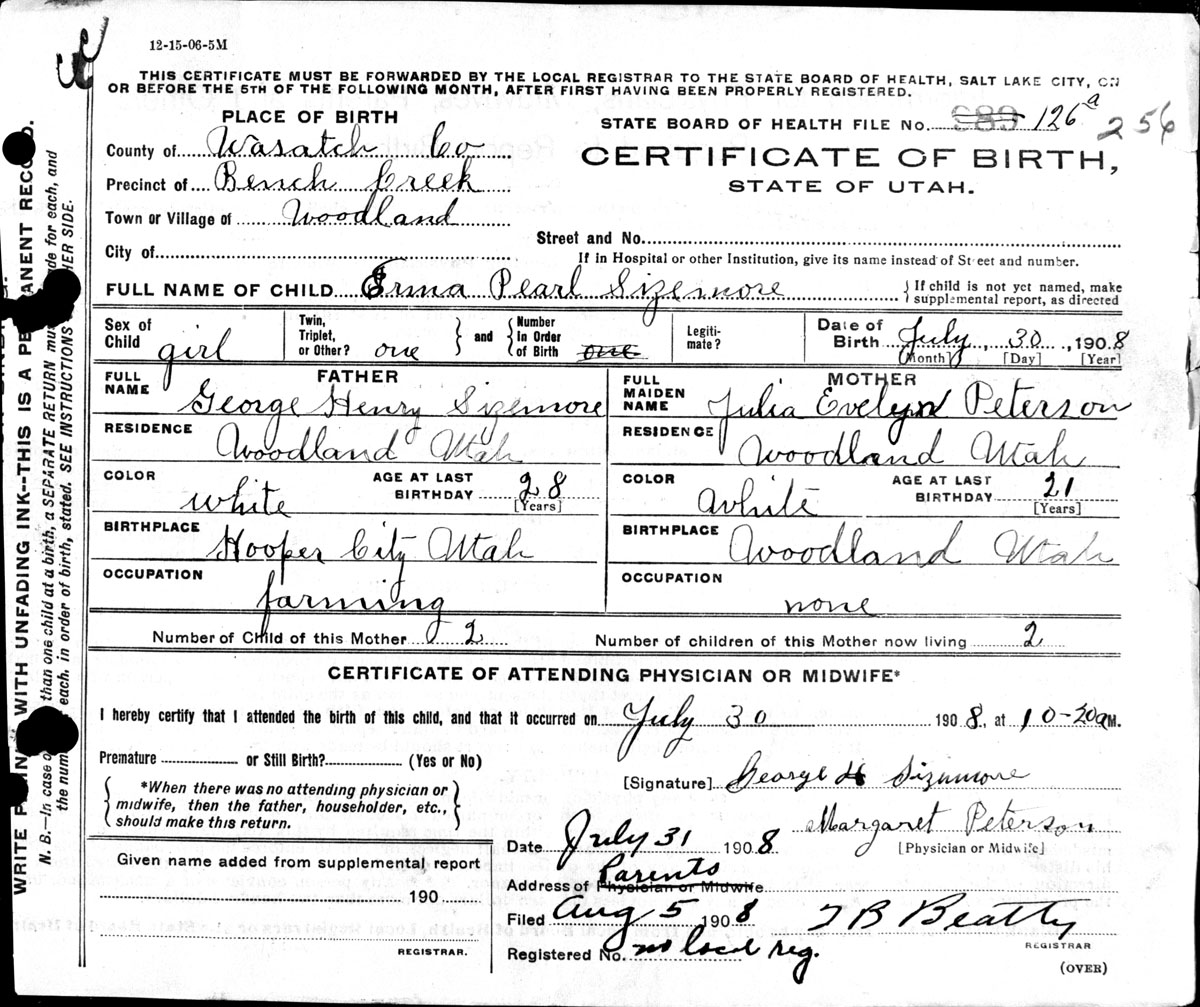 12-15-06-5M
THIS CERTIFICATE MUST BE FORWARDED BY THE LOCAL REGISTRAR TO THE STATE BOARD OF HEALTH, SALT LAKE CITY, ON
OR BEFORE THE 5TH OF THE FOLLOWING MONTH, AFTER FIRST HAVING BEEN PROPERLY REGISTERED.
PLACE OF BIRTH
STATE BOARD OF HEALTH FILE No. 126a 256
County of Wasatch Co
CERTIFICATE OF BIRTH,
Precinct of Bench Creek
STATE OF UTAH.
Town or Village of Woodland
Street and No.
City of
If in Hospital or other Institution, give its name instead of Street and number.
FULL NAME OF CHILD Erma Pearl Sizemore
If child is not yet named, make
supplemental report, as directed
Sex of Child girl
Twin, Triplet, or Other? one
and
Number In Order of Birth one
Legiti- mate?
Date of Birth July, 30, 1908
[Month] [Day] [Year]
FATHER
FULL NAME George Henry Sizemore
RESIDENCE Woodland Utah
COLOR white
AGE AT LAST BIRTHDAY 28
[Years]
BIRTHPLACE Hooper City Utah
OCCUPATION farming
MOTHER
FULL MAIDEN NAME Julia Evelyn Peterson
RESIDENCE Woodland Utah
COLOR White
AGE AT LAST BIRTHDAY 21
[Years]
BIRTHPLACE Woodland Utah
OCCUPATION none
Number of Child of this Mother 2
Number of children of this Mother now living 2
CERTIFICATE OF ATTENDING PHYSICIAN OR MIDWIFE*
I hereby certify that I attended the birth of this child, and that it occurred on July 30 1908, at 10-30 a M.
Premature or Still Birth? (Yes or No)
[Signature] George H Sizemore
*When there was no attending physician or
midwife, then the father, householder, etc.,
should make this return.
Margaret Peterson
[Physician or Midwife]
Date July 31 1908
Given name added from supplemental report
190
REGISTRAR.
Parents
Address of Physician or Midwife
Filed Aug 5 1908 T B Beatty
REGISTRAR
Registered No. no local reg.
(OVER)
WRITE WITH UNFADING INK--THIS IS A PERMANENT RECORD.
N. B.--In case of than one child at a birth, a SEPARATE RETURN must made for each, and
the number each, in order of birth, stated. SEE INSTRUCTIONS OTHER SIDE.